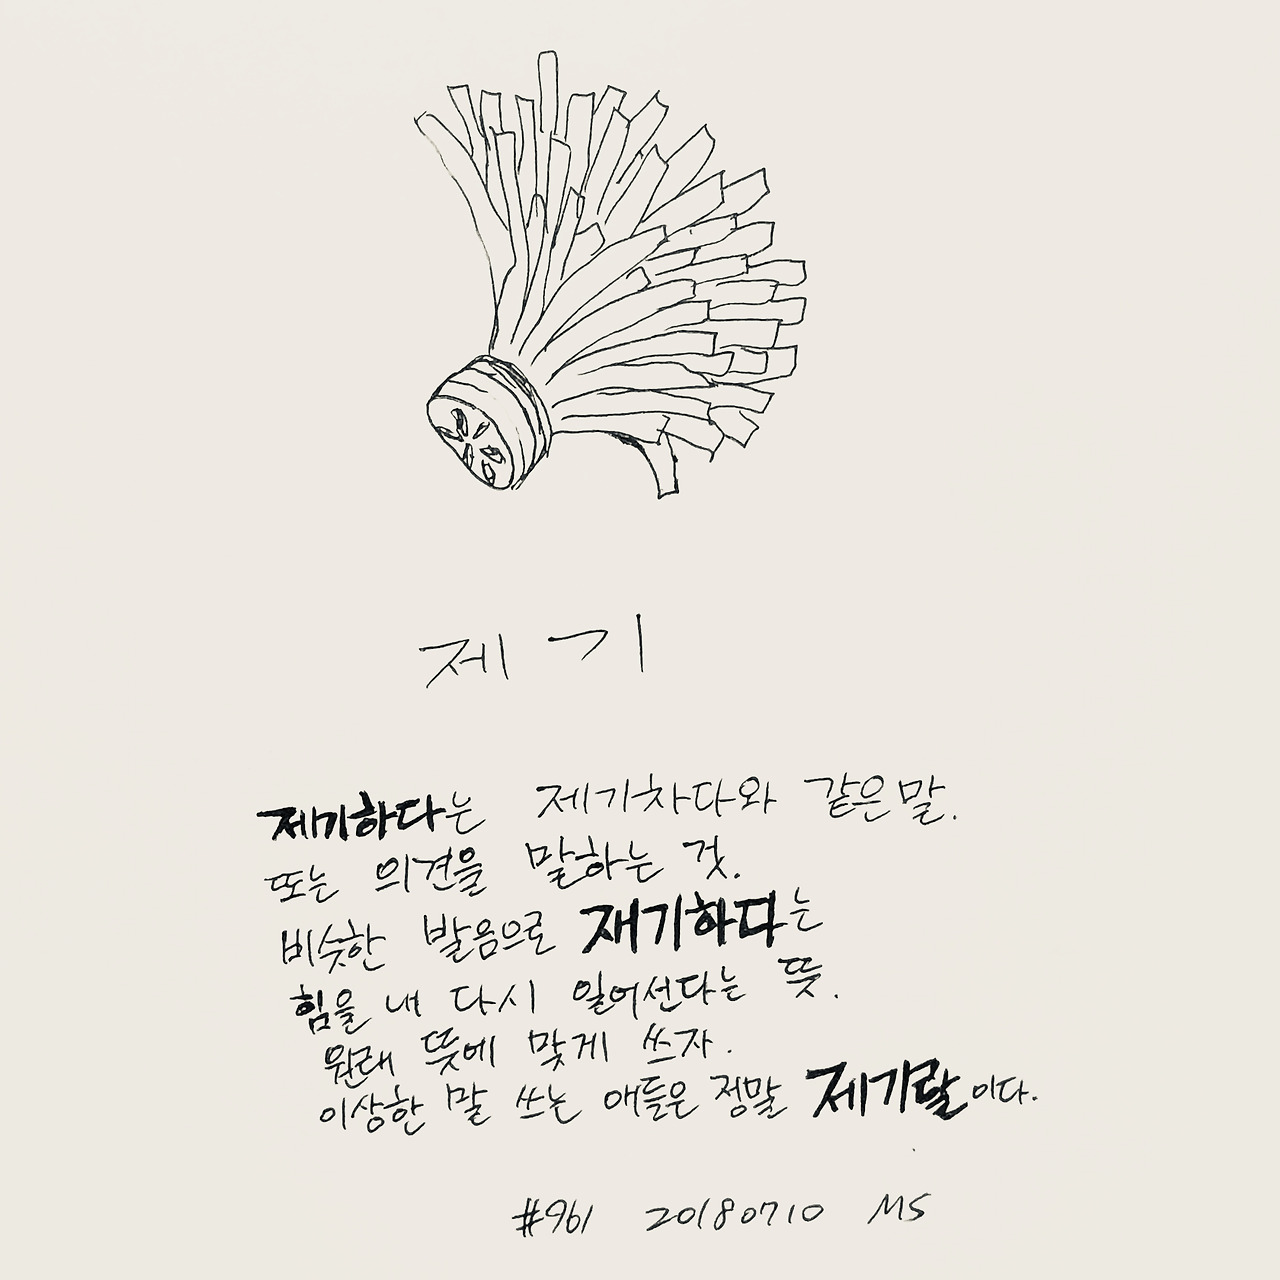 제기
제기하다는 제기차다와 같은말.
또는 의견을 말하는 것.
비슷한 발음으로 재기하다는
힘을 내 다시 일어선다는 뜻.
원래 뜻에 맞게 쓰자.
이상한 말 쓰는 애들은 정말 제기랄이다.
#961 20180710 MS